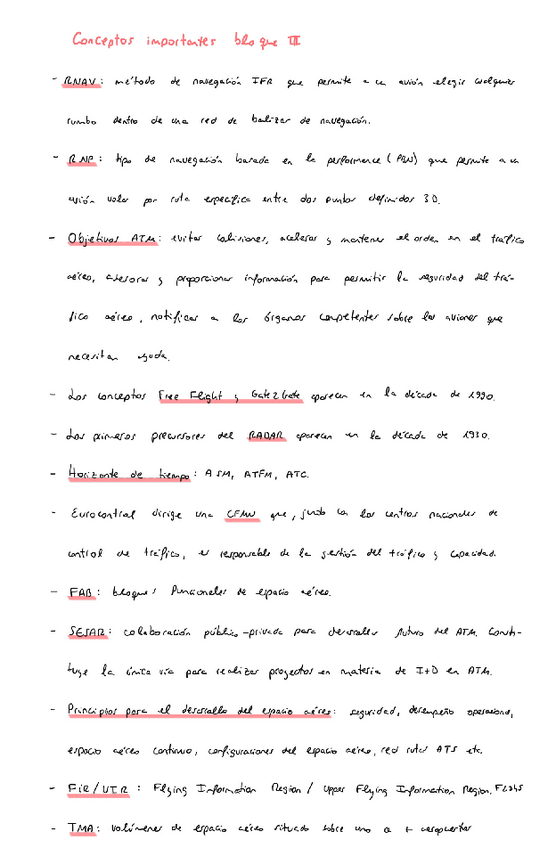 Conceptos importantes bloque III
- RNAV: método de navegación IFR que permite a un avión elegir cualquier
rumbo dentro de una red de balizas de navegación.
- RNP: tipo de navegación basada en la performance (PBN) que permite a un
avión volar por ruta específica entre dos puntos definidos 3D.
- Objetivos ATM: evitar colisiones, acelerar y mantener el orden en el tráfico
aéreo, asesorar y proporcionar información para permitir la seguridad del trá-
fico aéreo, notificar a los órganos competentes sobre los aviones que
necesitan ayuda.
- Los conceptos Free Flight y Gate2Gate aparecen en la década de 1990.
- Los primeros precursores del RADAR aparecen en la década de 1930.
- Horizonte de tiempo: ASM, ATFM, ATC.
- Eurocontrol dirige una CFMU que, junto con los centros nacionales de
control de tráfico, es responsable de la gestión del tráfico y capacidad.
- FAB: bloques funcionales de espacio aéreo.
- SESAR: colaboración público-privada para desarrollar futuro del ATM. Consti-
tuye la única vía para realizar proyectos en materia de I+D en ATM.
- Principios para el desarrollo del espacio aéreo: seguridad, desempeño operacional,
espacio aéreo continuo, configuraciones del espacio aéreo, red rutas ATS etc.
- FIR/UIR: Flying Information Region / Upper Flying Information Region. FL245
- TMA: volúmenes de espacio aéreo situado sobre uno o + aeropuertos